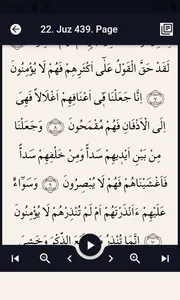 22. Juz 439. Page
لَقَدْ حَقَّ الْقَوْلُ عَلٰٓى اَكْثَرِهِمْ فَهُمْ لَا يُؤْمِنُونَ
﴿٧﴾ اِنَّا جَعَلْنَا فٖٓى اَعْنَاقِهِمْ اَغْلَالاً فَهِىَ
اِلَى الْاَذْقَانِ فَهُمْ مُقْمَحُونَ ﴿٨﴾ وَجَعَلْنَا
مِنْ بَيْنِ اَيْدٖيهِمْ سَداًّ وَمِنْ خَلْفِهِمْ سَداًّ
فَاَغْشَيْنَاهُمْ فَهُمْ لَا يُبْصِرُونَ ﴿٩﴾ وَسَوَٓاءٌ
عَلَيْهِمْ ءَاَنْذَرْتَهُمْ اَمْ لَمْ تُنْذِرْهُمْ لَا يُؤْمِنُونَ
﴿١٠﴾ اِنَّمَا تُنْذِرُ مَنِ اتَّبَعَ الذِّكْرَ وَخَشِىَ